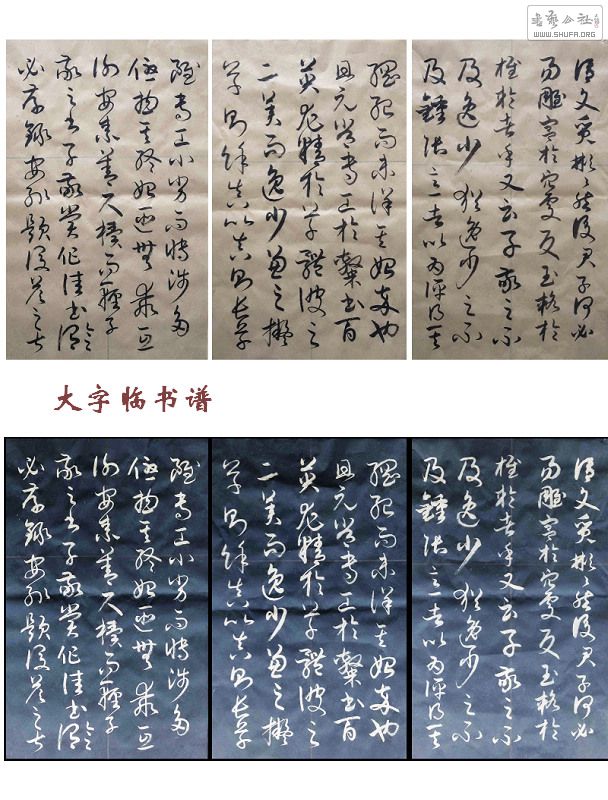 書藝公社
WWW.SHUFA.ORG
謂文質彬彬然後君子何必
易雕宮於穴處反玉輅於
椎輪者乎又云子敬之不
及逸少猶逸少之不
及鍾張意者以為評得其
綱紀而未詳其始卒也
且元常專工於隸書百
英尤精於草體彼之
二美而逸少兼之擬
草則餘真比真則長草
雖專工小劣而博涉多
優揔其終始匪無乖互
謝安素善尺牘而輕子
敬之書子敬嘗作佳書與之謂
必存錄安輒題後答之甚
大字临书谱
謂文質彬彬然後君子何必
易雕宮於穴處反玉輅於
椎輪者乎又云子敬之不
及逸少猶逸少之不
及鍾張意者以為評得其
綱紀而未詳其始卒也
且元常專工於隸書百
英尤精於草體彼之
二美而逸少兼之擬
草則餘真比真則長草
雖專工小劣而博涉多
優揔其終始匪無乖互
謝安素善尺牘而輕子
敬之書子敬嘗作佳書與之謂
必存錄安輒題後答之甚